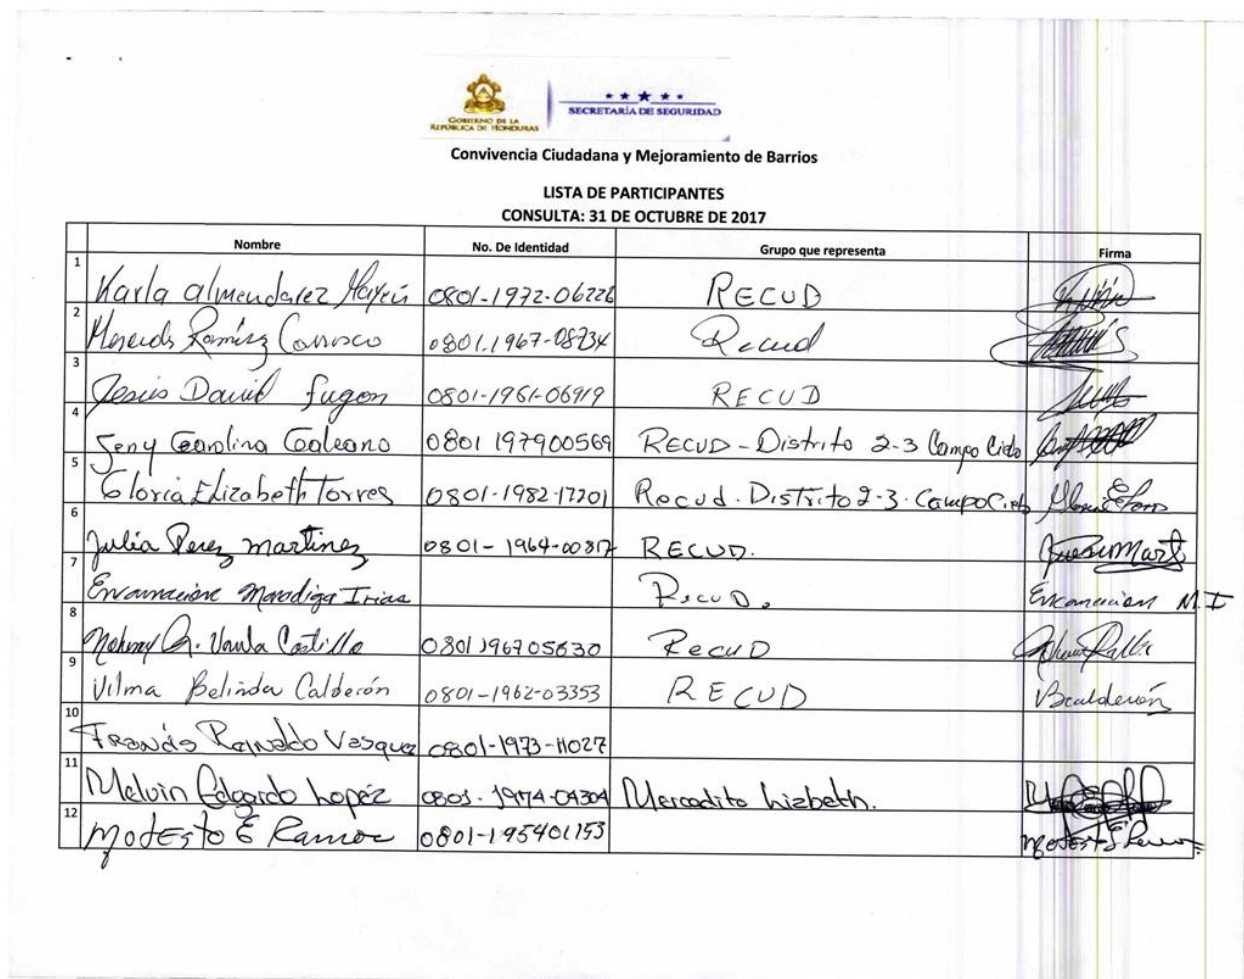 GOBIERNO DE LA
REPÚBLICA DE HONDURAS
SECRETARÍA DE SEGURIDAD
Convivencia Ciudadana y Mejoramiento de Barrios
LISTA DE PARTICIPANTES
CONSULTA: 31 DE OCTUBRE DE 2017
Nombre No. De Identidad Grupo que representa Firma
1 Karla Almendarez 0801-1972-06226 RECUD
2 Ramirez Carrasco 0801-1967-08734 Recud
3 Jesús David fugon 0801-1961-06919 RECUD
4 Jeny Carolina Galeano 0801 197900569 RECUD - Distrito 2-3 Campo Cielo
5 Gloria Elizabeth Torres 0801-1982-17201 Recud. Distrito 2-3. Campo Cielo
6 Julia Perez martinez 0801-1964-00817 RECUD.
7 Maradiga Irias Recud. Encarnacion M.I
8 Castillo 0801196705630 RecuD
9 Vilma Belinda Calderón 0801-1962-03353 RECUD Bcalderón
10 Reinaldo Vasquez 0801-1973-11027
11 Melvin Edgardo Lopéz 0801-1974-04304 Mercadito Lizbeth.
12 Modesto E Ramos 0801-195401153